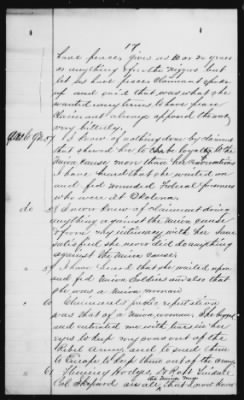 17
have peace, give us war or give us
anything for the Negros but
let us have peace, Claimant spoke
up and said that was what she
wanted any terms to have peace
Claimant always opposed the war
very bitterly.
I know of nothing done by claimant
that showed her to be loyal to the
Union cause more than her conversations
I have heard that she waited on
and fed wounded Federal prisoners
who were at Okolona.
do I never knew of claimant doing
anything against the Union cause
from my intimacy with her I am
satisfied she never did do anything
against the Union cause.
I have heard that she waited upon
and fed Union Soldiers and also that
she was a Union woman
Claimants public reputation
was that of a Union woman, She
and entreated me with tears in her
eyes to keep my sons out of the
Rebel Army, and to send them
to Europe to keep them out of the army
61 Fleming Hodges, Dr Robt
Col Shepard are all the Union men that I now know